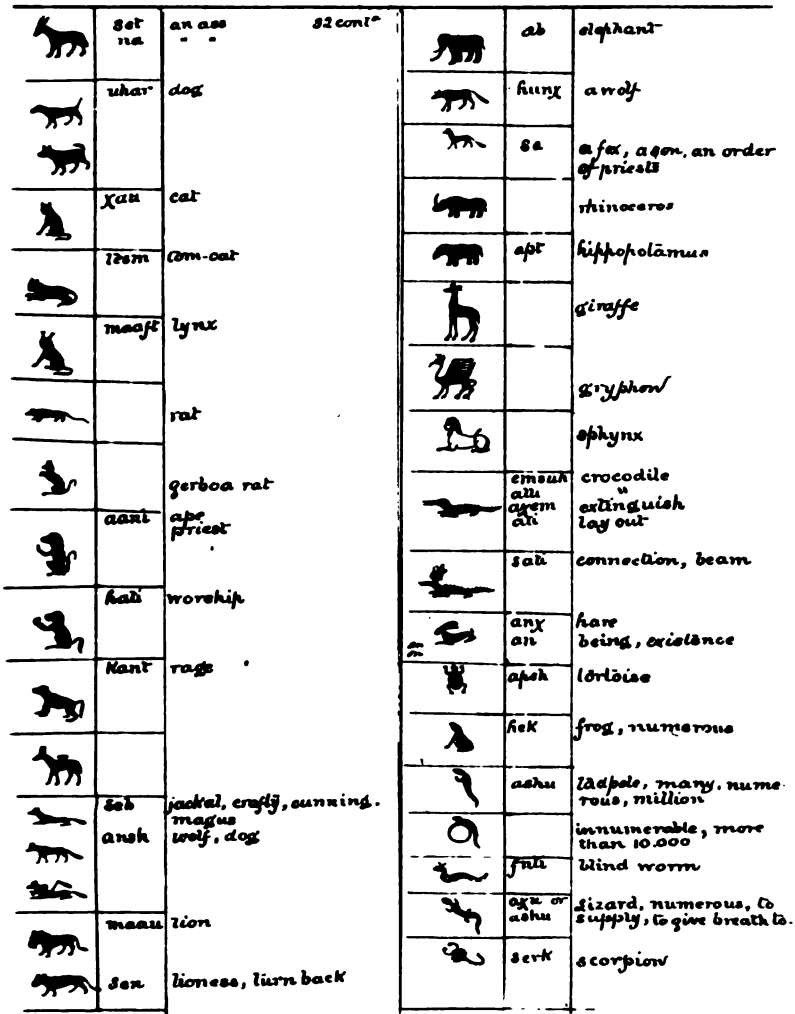 set an ass 92 contd
na " "
uhar dog
χau cat
tom-cat
maaft lynx
rat
gerboa rat
aani ape
priest
hati worship
Kant rage
seb jackal, crafty, cunning.
magus
ansh wolf, dog
maau lion
sen lioness, turn back
ab elephant
hunχ a wolf
sa a fox, a son, an order
of priests
rhinoceros
apt hippopotamus
giraffe
gryphon
sphynx
emsuh crocodile
atu "
aχem extinguish
ati lay out
sati connection, beam
anχ hare
an being, existence
apsh tortoise
hek frog, numerous
ashu tadpole, many, nume-
rous, million
innumerable, more
than 10.000
blind worm
aχu or lizard, numerous, to
ashu supply, to give breath to.
serk scorpion